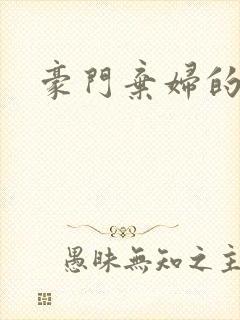 豪門棄婦的
愚昧無知之主